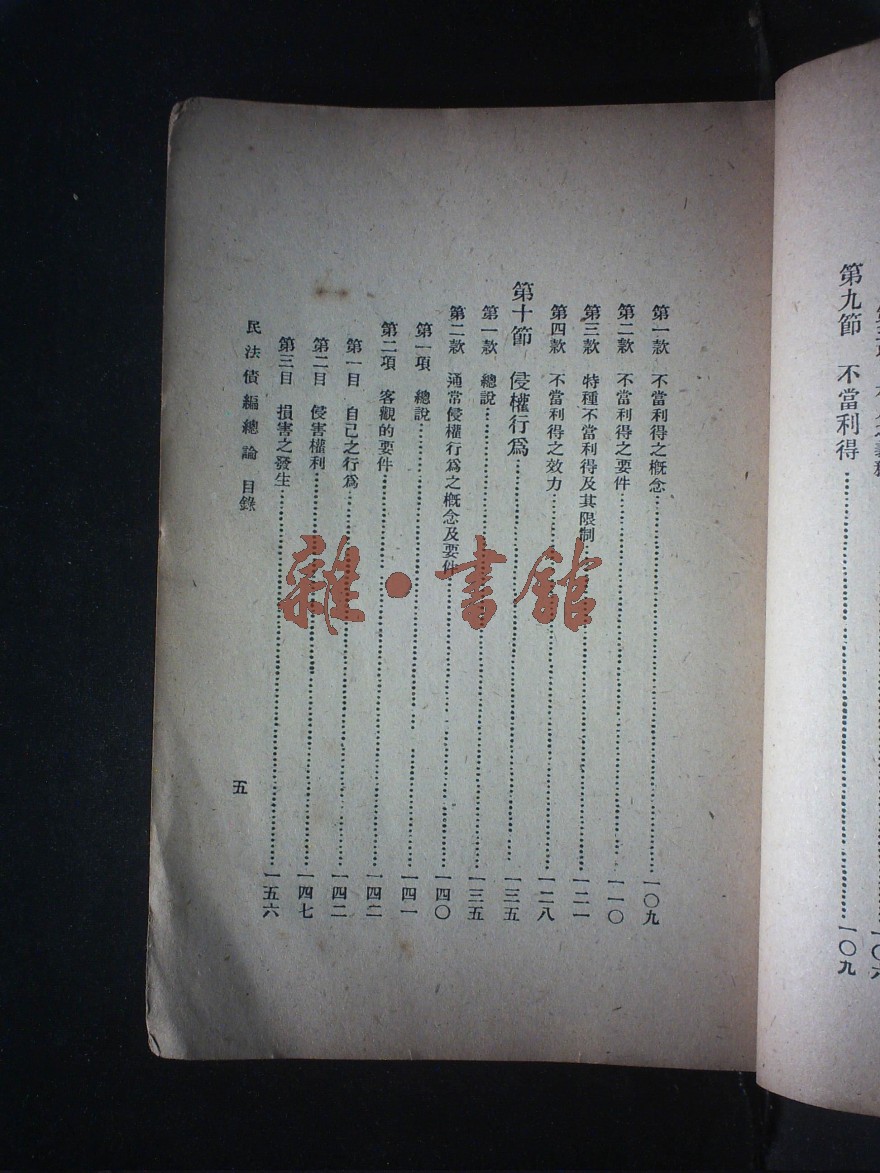 第九節　不當利得……一〇九
第一款　不當利得之概念……一〇九
第二款　不當利得之要件……一一〇
第三款　特種不當利得及其限制……一二一
第四款　不當利得之效力……一二八
第十節　侵權行爲……一三五
第一款　總說……一三五
第二款　通常侵權行爲之概念及要件……一四〇
第一項　總說……一四一
第二項　客觀的要件……一四二
第一目　自己之行爲……一四二
第二目　侵害權利……一四七
第三目　損害之發生……一五六
民法債編總論　目錄
五
雜·書館